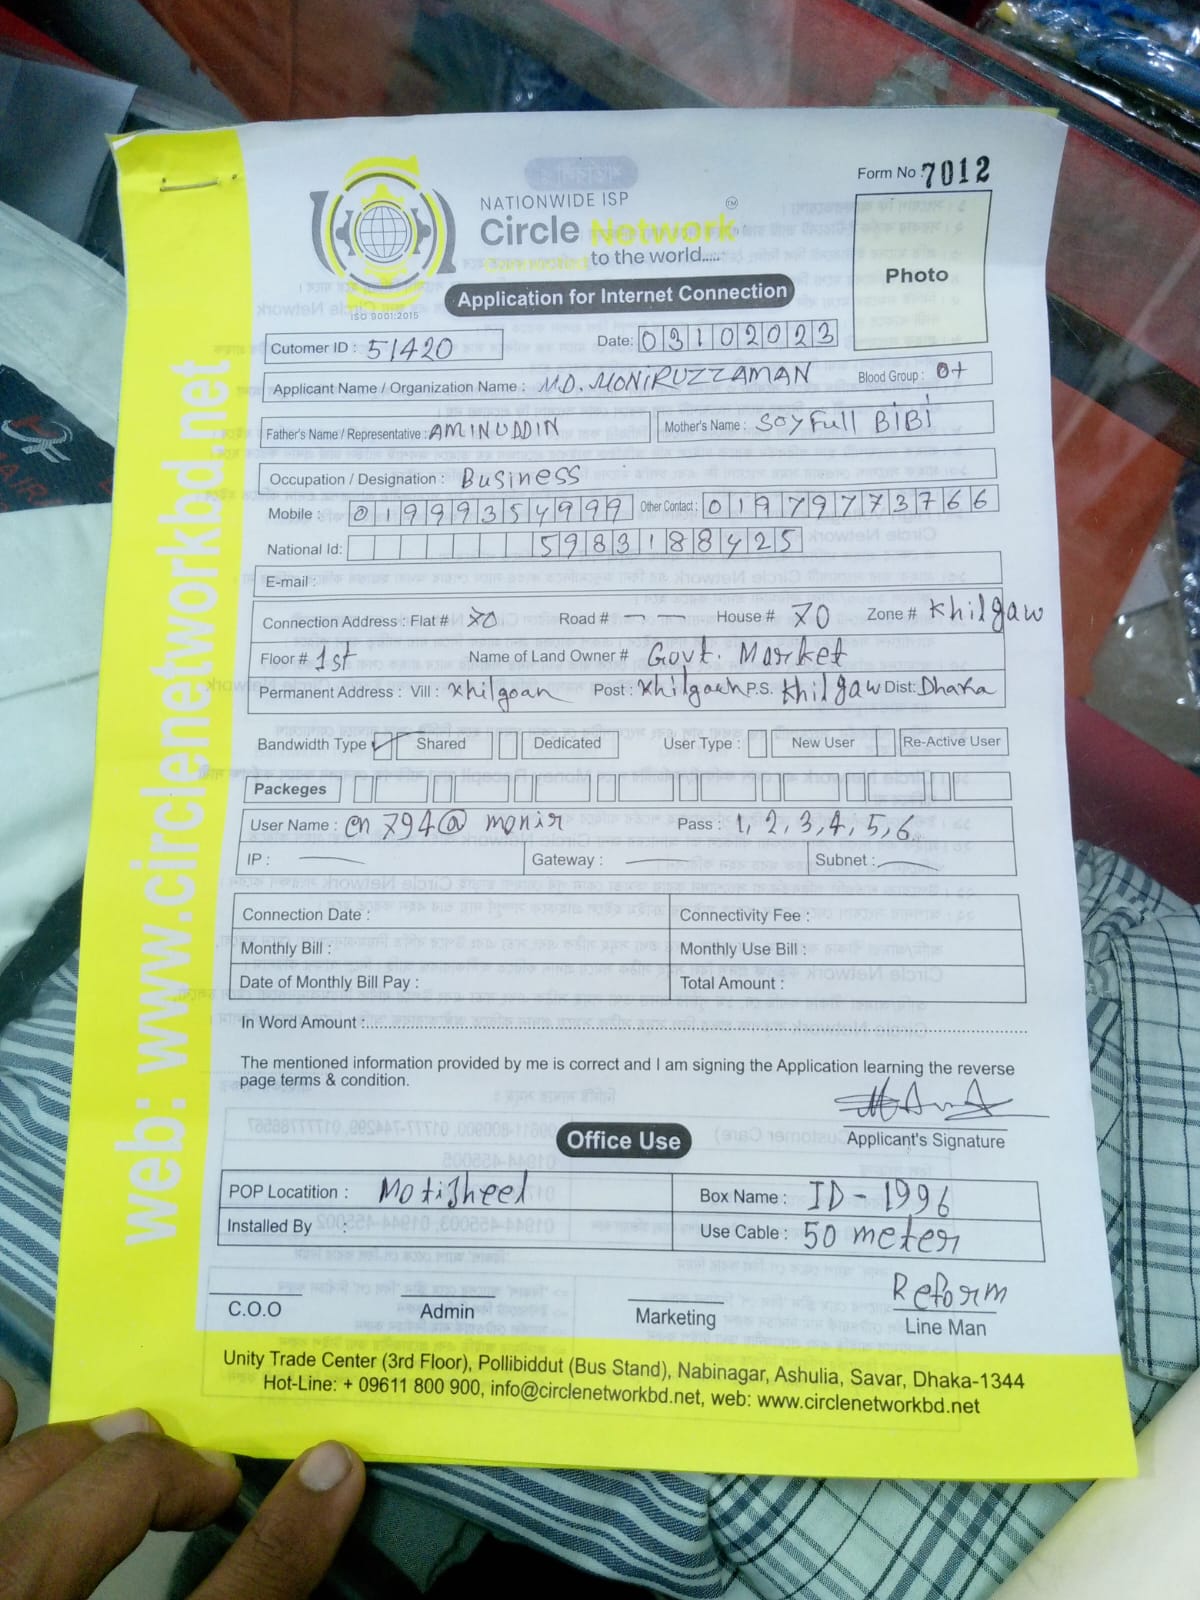 Form No :7012
NATIONWIDE ISP
Circle Network TM
to the world.....
ISO 9001:2015
Application for Internet Connection
Photo
Cutomer ID : 51420 Date: 03102023
Applicant Name / Organization Name : MD. MONIRUZZAMAN Blood Group : O+
Father's Name / Representative : AMINUDDIN Mother's Name : SOYFull BiBi
Occupation / Designation : Business
Mobile : 01999354999 Other Contact : 01979773766
National Id: 5983188425
E-mail :
Connection Address : Flat # 70 Road # — House # 70 Zone # Khilgaw
Floor # 1st Name of Land Owner # Govt. Market
Permanent Address : Vill : Khilgoan Post : Khilgoan P.S. Khilgaw Dist: Dhaka
Bandwidth Type ✓ Shared Dedicated User Type : New User Re-Active User
Packeges
User Name : cn 794@ monir Pass : 1, 2, 3, 4, 5, 6
IP : — Gateway : — Subnet : —
Connection Date : Connectivity Fee :
Monthly Bill : Monthly Use Bill :
Date of Monthly Bill Pay : Total Amount :
In Word Amount :
The mentioned information provided by me is correct and I am signing the Application learning the reverse
page terms & condition.
Applicant's Signature
Office Use
POP Locatition : Motijheel Box Name : ID-1996
Installed By : Use Cable : 50 meter
Reform
C.O.O Admin Marketing Line Man
Unity Trade Center (3rd Floor), Pollibiddut (Bus Stand), Nabinagar, Ashulia, Savar, Dhaka-1344
Hot-Line: + 09611 800 900, info@circlenetworkbd.net, web: www.circlenetworkbd.net
web: www.circlenetworkbd.net